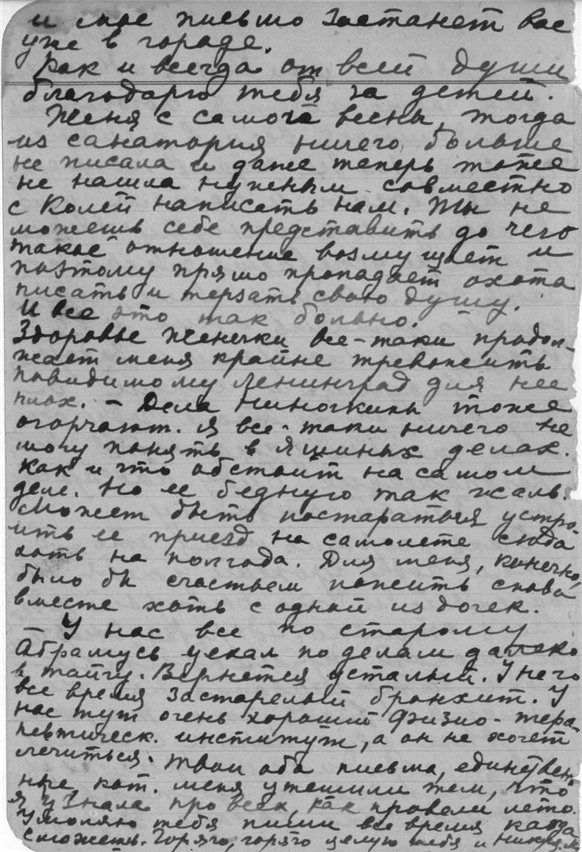 и мое письмо застанет вас
уже в городе.
Как и всегда от всей души
благодарю тебя за детей.
Женя с самога весны, тогда
из санатория ничего больше
не писала и даже теперь тоже
не нашла нужным совместно
с Колей написать нам. Ты не
можешь себе представить до чего
такое отношение возмущает и
поэтому прямо пропадает охота
писать и терзать свою душу.
И все это так больно.
Здоровье Женечки все-таки продол-
жает меня крайне тревожить
повидимому Ленинград для нее
плох. – Дела Ниночкины тоже
огорчают. Я все-таки ничего не
могу понять в Яшиных делах.
Как и что обстоит на самом
деле. Но ее бедную так жаль.
Может быть постараться устро-
ить ее приезд на самолете сюда
хоть на полгода. Для меня, конечно
было бы счастьем пожить снова
вместе хоть с одной из дочек.
У нас все по старому
Абрамусь уехал по делам далеко
в тайгу. Вернется усталый. У него
все время застарелый бронхит. У
нас тут очень хороший физио-тера-
певтическ. институт, а он не хочет
лечиться. Твои оба письма, единствен-
ные кот. меня утешили тем, что
я узнала про всех, как провели лето.
Умоляю тебя пиши все время когда
сможешь. Горячо, горячо целую тебя и